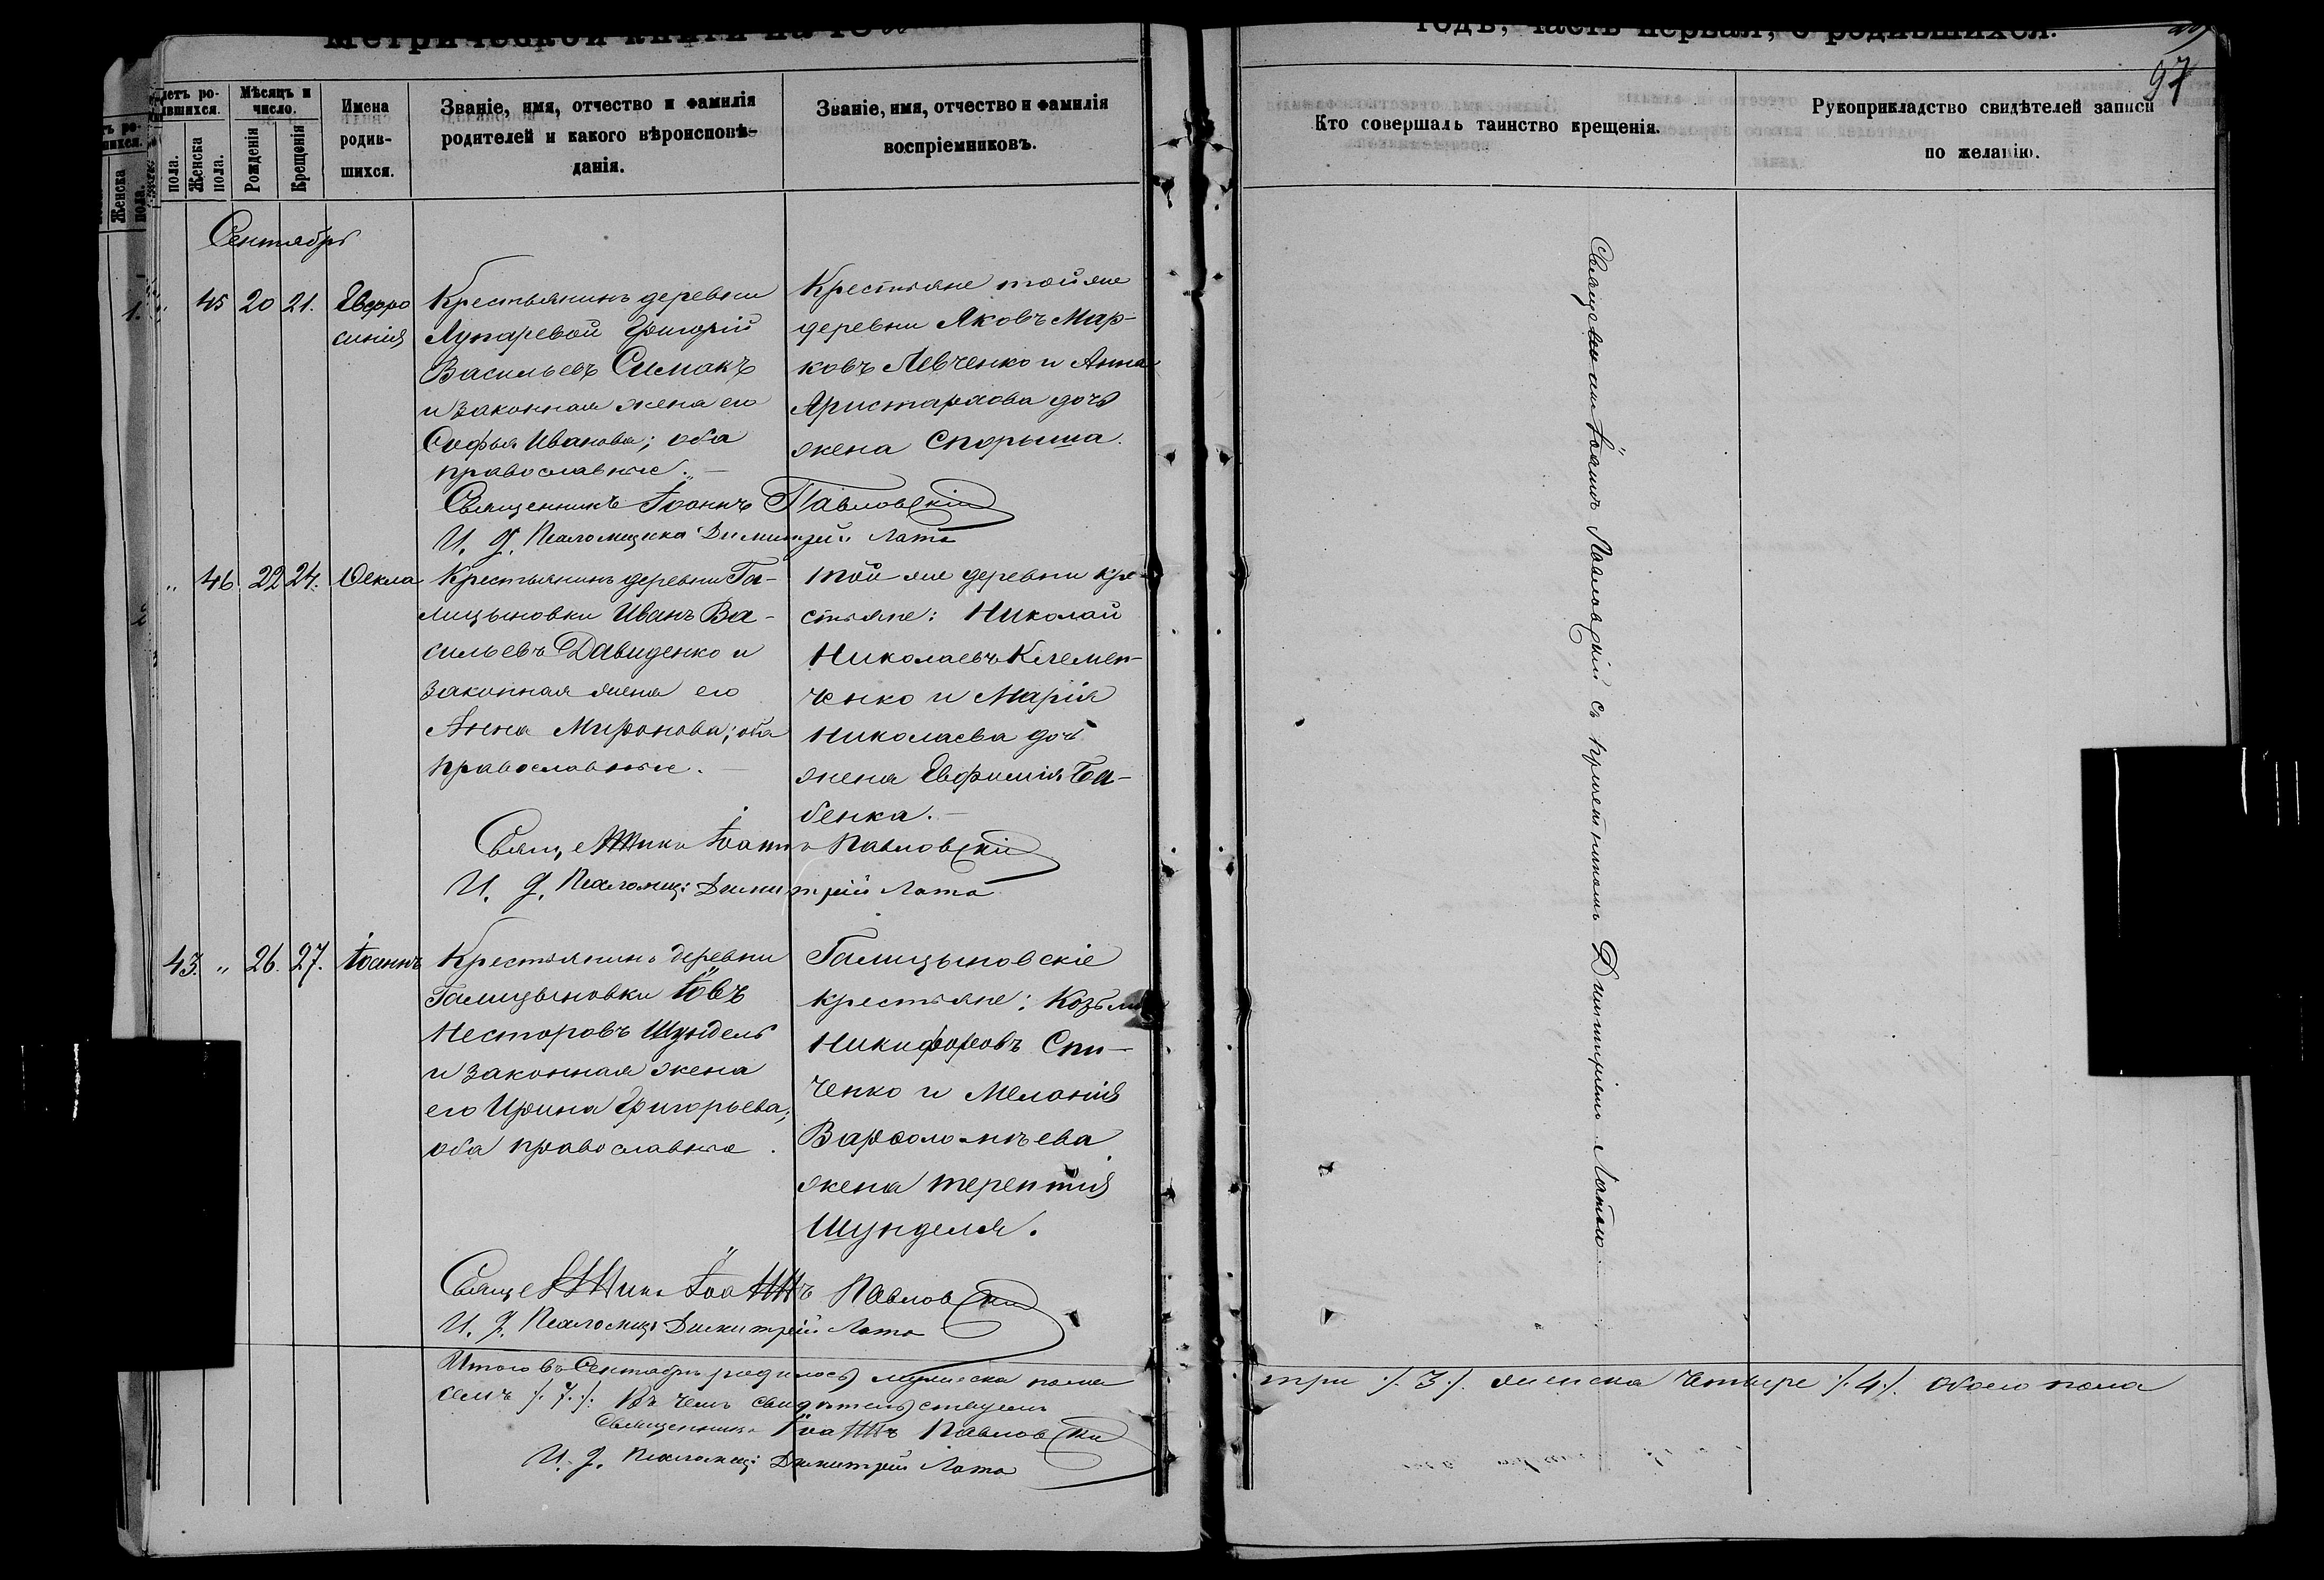 Метрической книги на 18
годъ, часть первая, о родившихся.
97
Счетъ родившихся.
Мѣсяцъ и число.
Имена родившихся.
Званіе, имя, отчество и фамилія родителей и какого вѣроисповѣданія.
Званіе, имя, отчество и фамилія воспріемниковъ.
Кто совершалъ таинство крещенія.
Рукоприкладство свидѣтелей записи по желанію.
пола.
Женска пола.
Рожденія
Крещенія
Сентябрь
„ 45 20 21. Евфро
синія
Крестьянинъ деревни
Лупаревой Григорій
Васильевъ Симакъ
и законная жена его
Софья Иванова; оба
православные. —
Крестьяне той же
деревни Яковъ Мар-
ковъ Левченко и Анна
Аристархова дочь
жена Спорыша.
Священникъ Іоаннъ Павловскій
И. д. Псаломщика Димитрій Лата
„ 46 22 24. Ѳекла
Крестьянинъ деревни Га-
лицыновки Иванъ Ва-
сильевъ Давиденко и
законная жена его
Анна Миронова; оба
православные. —
Той же деревни кре-
стьяне: Николай
Николаевъ Клемен-
ченко и Марія
Николаева дочь
жена Евфимія Ба-
бенка. —
Священникъ Іоаннъ Павловскій
И. д. Псаломщ: Димитрій Лата
43. „ 26. 27. Іоаннъ
Крестьянинъ деревни
Галицыновки Іовъ
Несторовъ Шундель
и законная жена
его Ирина Григорьева;
оба православные.
Галицыновскіе
крестьяне: Козьма
Никифоровъ Спи-
ченко и Меланія
Варѳоломѣева
жена Терентія
Шунделя.
Священникъ Іоаннъ Павловскій
И. д. Псаломщ: Димитрій Лата
Священникъ Іоаннъ Павловскій съ Димитріемъ Латою
Итого въ Сентябрѣ родилось мужеска пола три /.3./. женска четыре /.4./. обоего пола
семь /.7./: Въ чемъ свидѣтельствуемъ
Священникъ Іоаннъ Павловскій
И. д. Псаломщ: Димитрій Лата